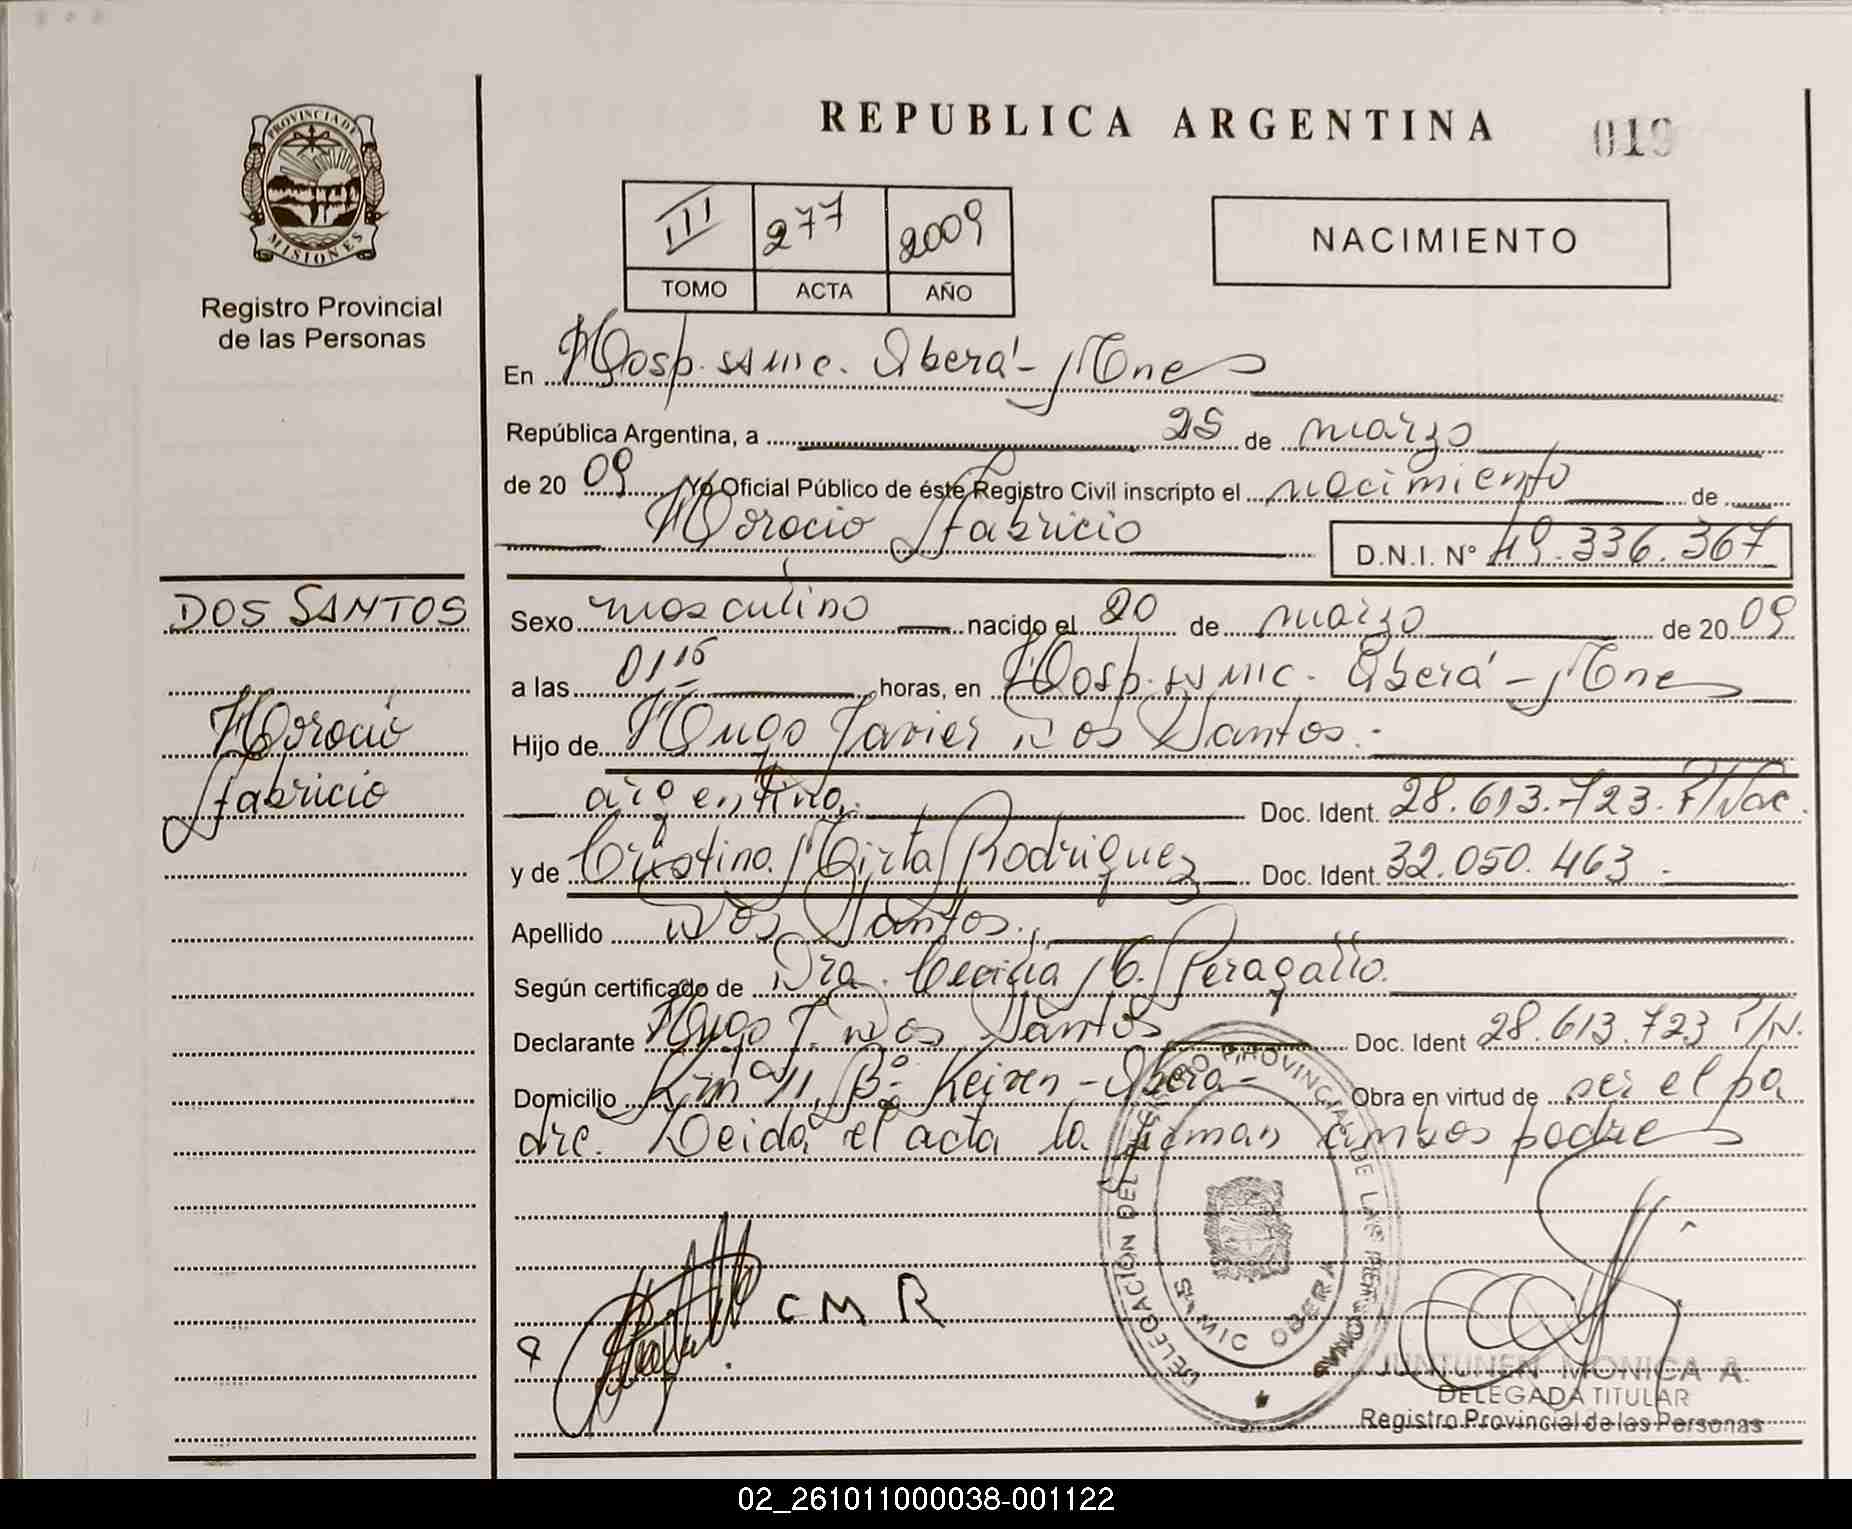 PROVINCIA DE
MISIONES
Registro Provincial
de las Personas
REPUBLICA ARGENTINA
019
III 277 2009
TOMO ACTA AÑO
NACIMIENTO
En Hosp. SAMIC. Oberá - Mnes
República Argentina, a 25 de marzo
de 2009 Yo Oficial Público de éste Registro Civil inscripto el nacimiento de
Horacio Fabricio D.N.I. N° 49.336.367
DOS SANTOS
Horacio
Fabricio
Sexo masculino nacido el 20 de marzo de 2009
a las 01 15 horas, en Hosp. SAMIC. Oberá - Mnes
Hijo de Hugo Javier Dos Santos.-
argentino. Doc. Ident. 28.613.723. P/Nac.
y de Cristina Mirta Rodriguez Doc. Ident. 32.050.463.-
Apellido Dos Santos.
Según certificado de Dra. Cecilia M. Peragallo.
Declarante Hugo J. Dos Santos Doc. Ident 28.613.723 P/N.
Domicilio Km 11, Bº Keixen - Oberá - Obra en virtud de ser el pa
dre. Leida el acta la firman ambos padres
C M R
DELEGACIÓN DEL REGISTRO PROVINCIAL DE LAS PERSONAS
SAMIC OBERA
JUNTUNEN MONICA A.
DELEGADA TITULAR
Registro Provincial de las Personas
02_261011000038-001122